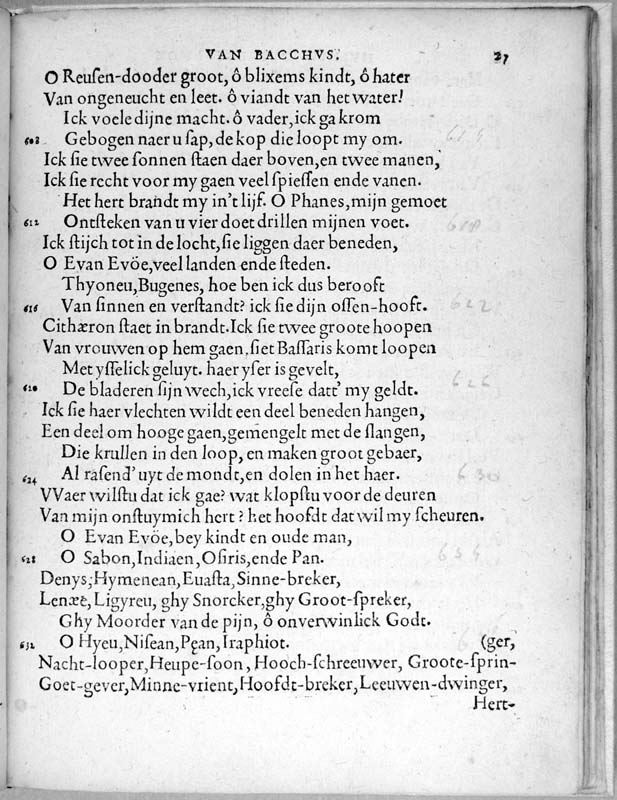 VAN BACCHVS. 27
O Reuſen-dooder groot, ô blixems kindt, ô hater
Van ongeneucht en leet. ô viandt van het water!
Ick voele dijne macht. ô vader, ick ga krom
608 Gebogen naer u ſap, de kop die loopt my om. 614
Ick ſie twee ſonnen ſtaen daer boven, en twee manen,
Ick ſie recht voor my gaen veel ſpieſſen ende vanen.
Het hert brandt my in't lijf. O Phanes, mijn gemoet
612 Ontſteken van u vier doet drillen mijnen voet. 618
Ick ſtijch tot in de locht, ſie liggen daer beneden,
O Evan Evöe, veel landen ende ſteden.
Thyoneu, Bugenes, hoe ben ick dus berooft
616 Van ſinnen en verſtandt? ick ſie dijn oſſen-hooft. 622
Cithæron ſtaet in brandt. Ick ſie twee groote hoopen
Van vrouwen op hem gaen, ſiet Baſſaris komt loopen
Met yſſelick geluyt. haer yſer is gevelt,
620 De bladeren ſijn wech, ick vreeſe datt' my geldt. 626
Ick ſie haer vlechten wildt een deel beneden hangen,
Een deel om hooge gaen, gemengelt met de ſlangen,
Die krullen in den loop, en maken groot gebaer,
624 Al raſend' uyt de mondt, en dolen in het haer. 630
VVaer wilſtu dat ick gae? wat klopſtu voor de deuren
Van mijn onſtuymich hert? het hoofdt dat wil my ſcheuren.
O Evan Evöe, bey kindt en oude man,
628 O Sabon, Indiaen, Oſiris, ende Pan. 634
Denys, Hymenean, Euaſta, Sinne-breker,
Lenæe, Ligyreu, ghy Snorcker, ghy Groot-ſpreker,
Ghy Moorder van de pijn, ô onverwinlick Godt.
632 O Hyeu, Niſean, Pęan, Iraphiot. (ger,
Nacht-looper, Heupe-ſoon, Hooch-ſchreeuwer, Groote-ſprin-
Goet-gever, Minne-vrient, Hoofdt-breker, Leeuwen-dwinger,
Hert-